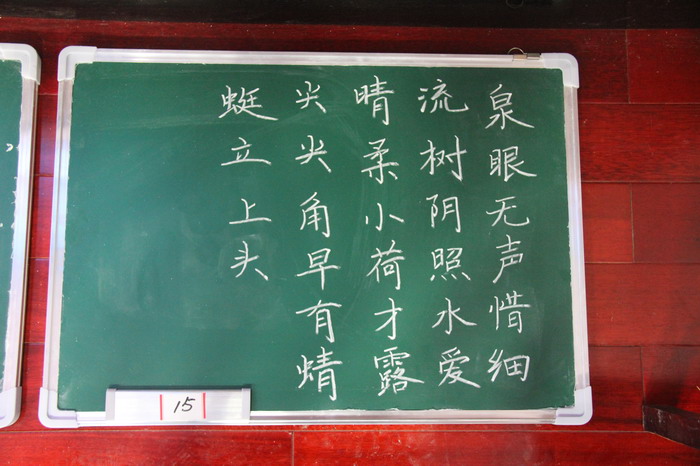 泉眼无声惜细
流树阴照水爱
晴柔小荷才露
尖尖角早有蜻
蜓立上头
15